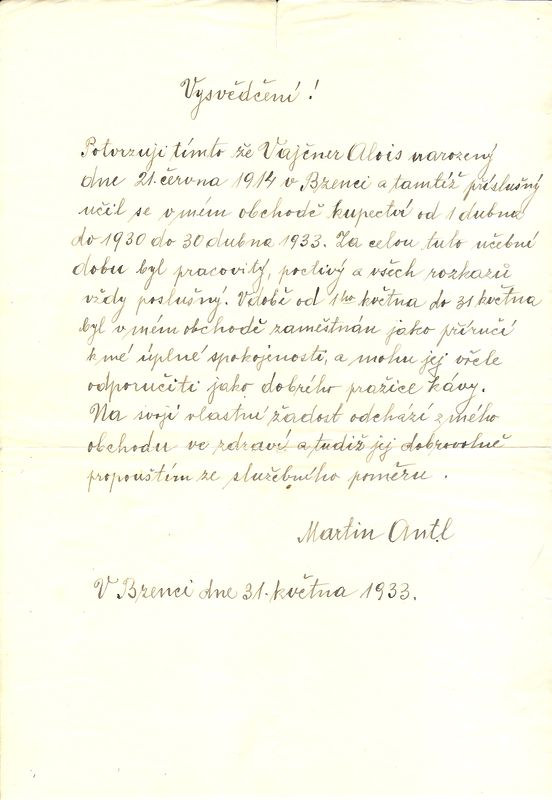 Vysvědčení!
Potvrzuji tímto že Vajčner Alois narozený
dne 21. června 1914 v Bzenci a tamtéž příslušný
učil se v mém obchodě kupectví od 1 dubna
do 1930 do 30 dubna 1933. Za celou tuto učební
dobu byl pracovitý, poctivý a všech rozkazů
vždy poslušný. V době od 1ho května do 31 května
byl v mém obchodě zaměstnán jako příručí
k mé úplné spokojenosti, a mohu jej vřele
odporučiti jako dobrého pražiče kávy.
Na svojí vlastní žádost odchází z mého
obchodu ve zdraví a tudíž jej dobrovolně
propouštím ze služebního poměru.
Martin Antl
V Bzenci dne 31. května 1933.